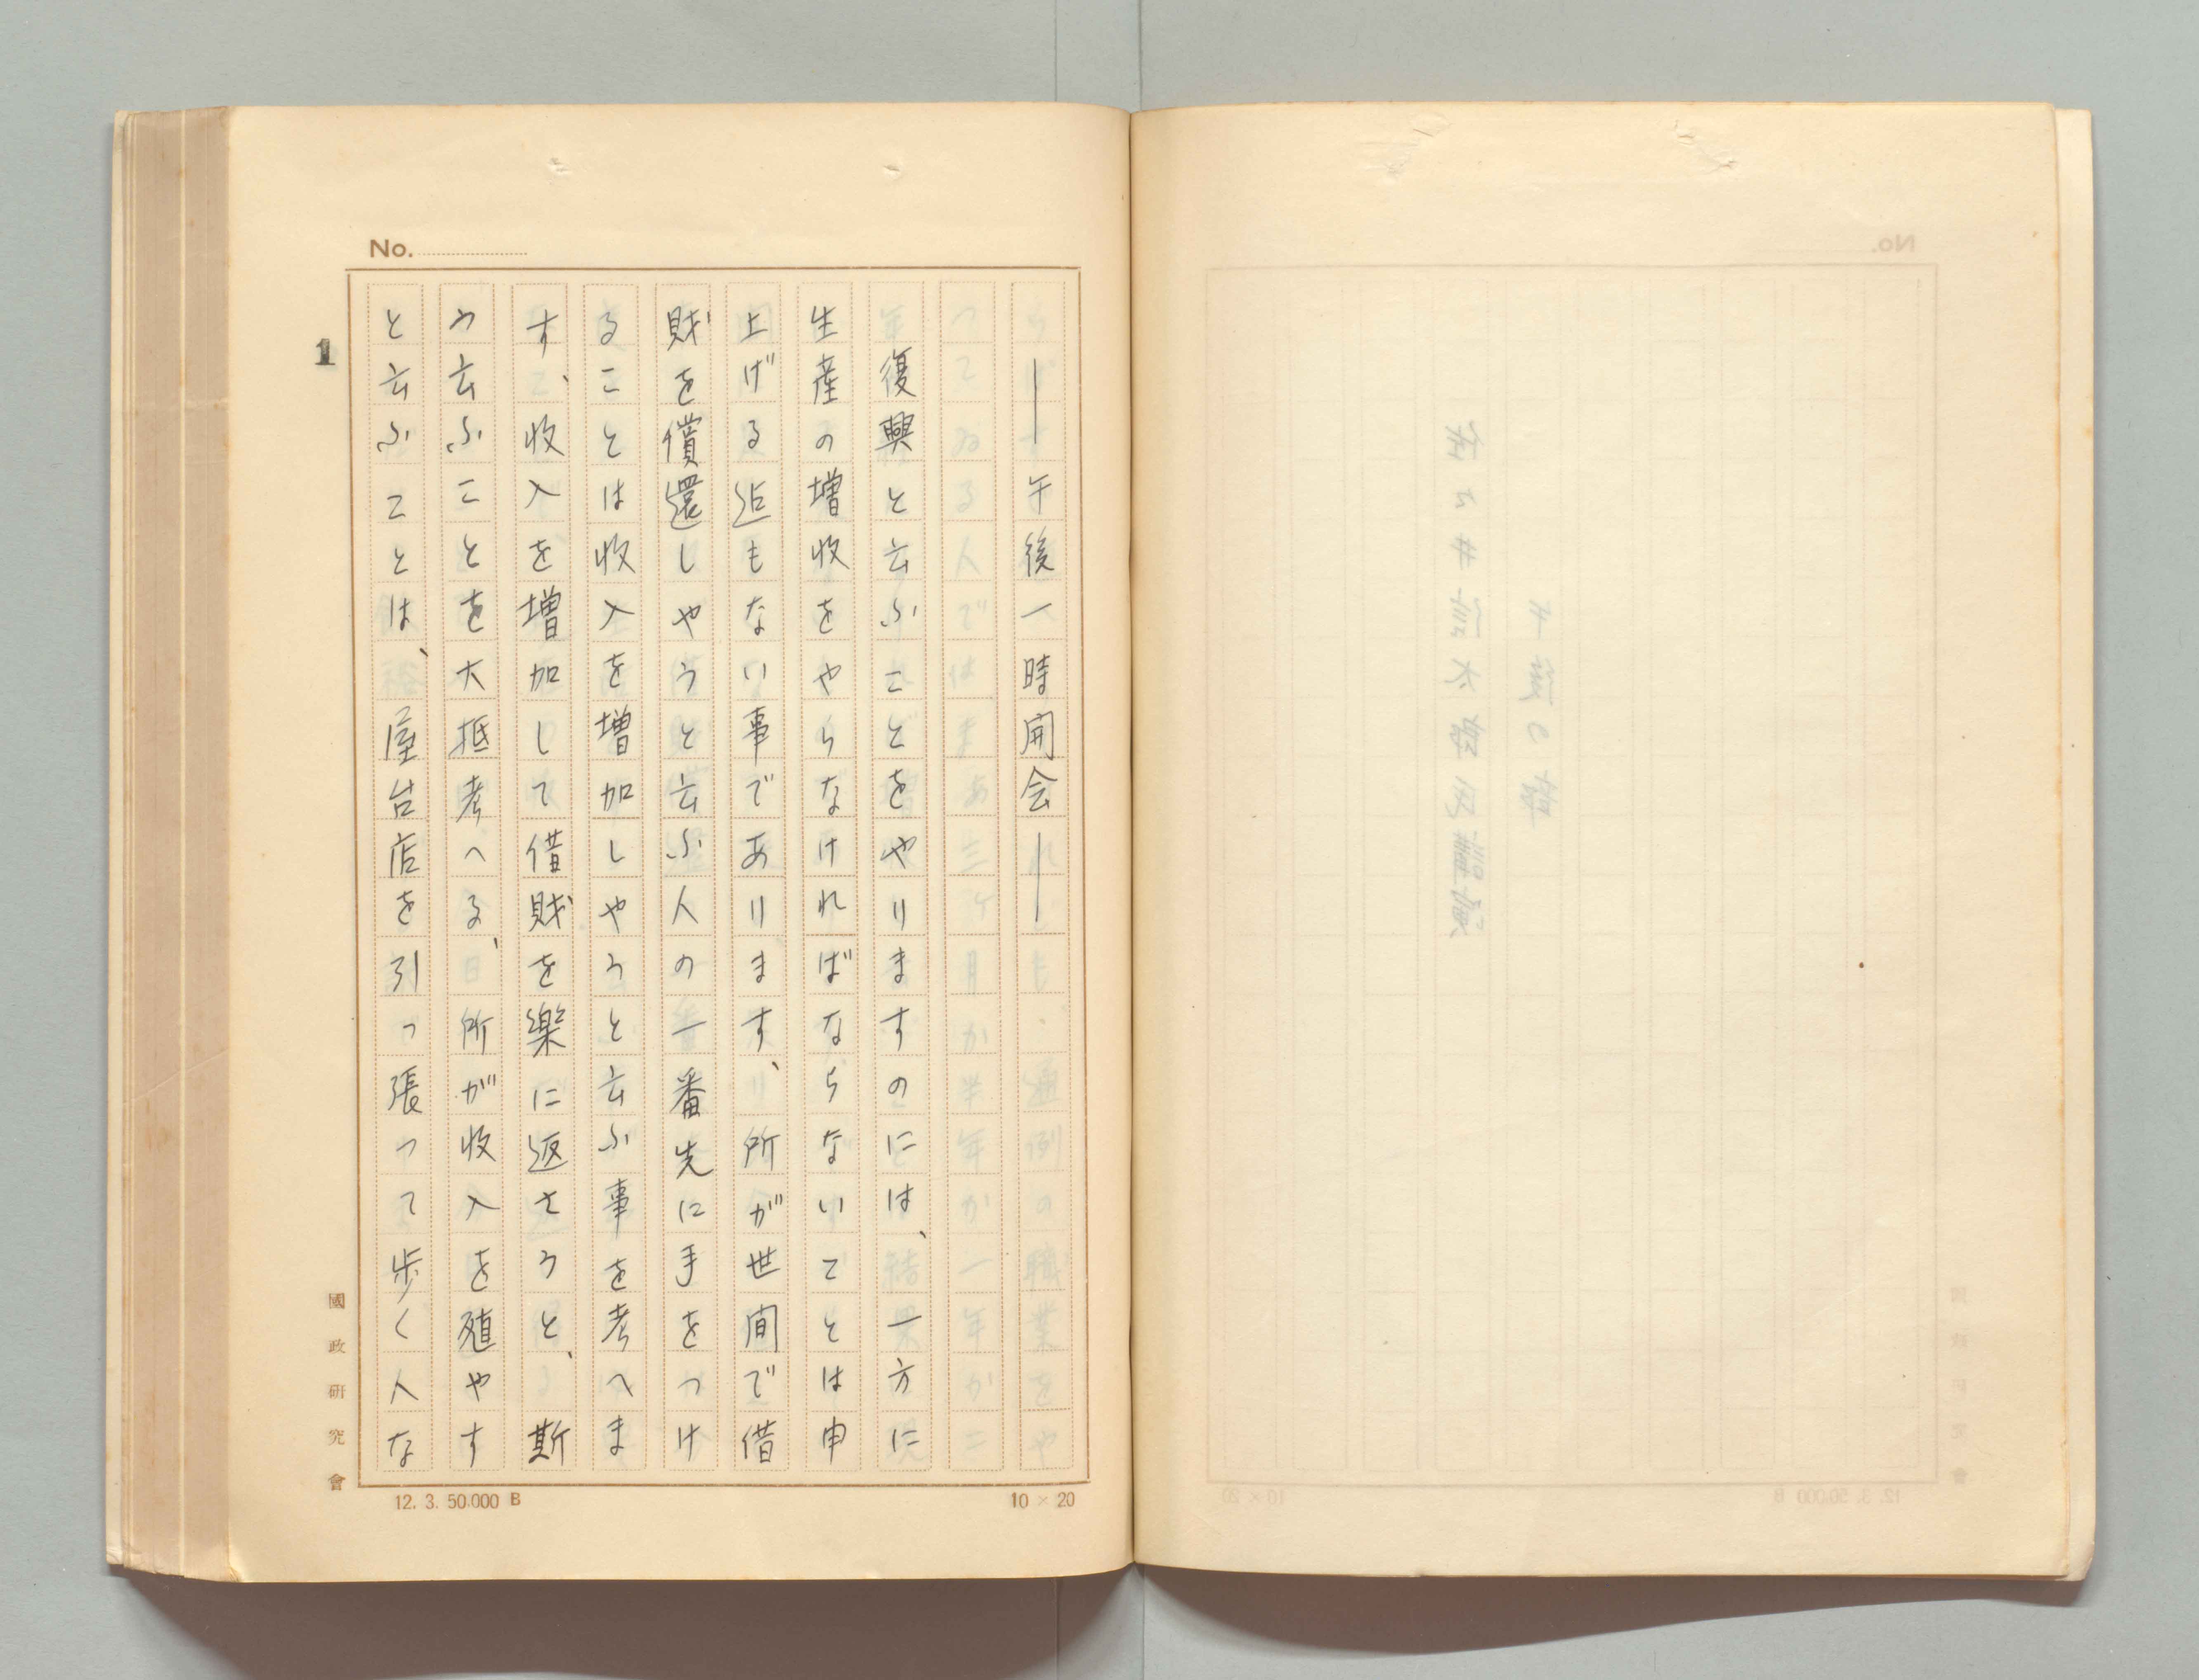 No.
——午後一時開会——
復興と云ふことをやりますのには、一方に
生産の増収をやらなければならないことは申
上げる迄もない事であります、所が世間で借
財を償還しやうと云ふ人の一番先に手をつけ
ることは收入を増加しやうと云ふ事を考へま
す、收入を増加して借財を楽に返さうと、斯
う云ふことを大抵考へる、所が收入を殖やす
と云ふことは、屋台店を引っ張って歩く人な
1
國政研究會
12. 3. 50.000 B
10 × 20